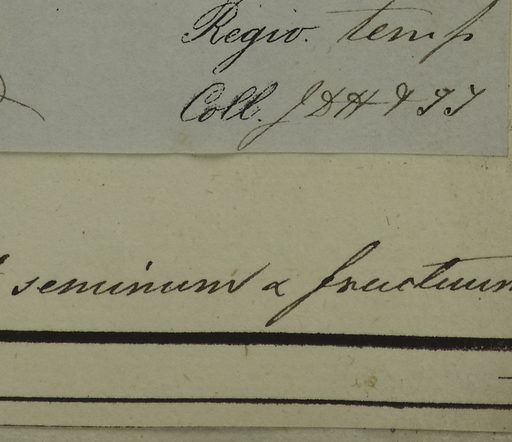 Regio. temp
Coll. JDH & TT
seminum & fructuum